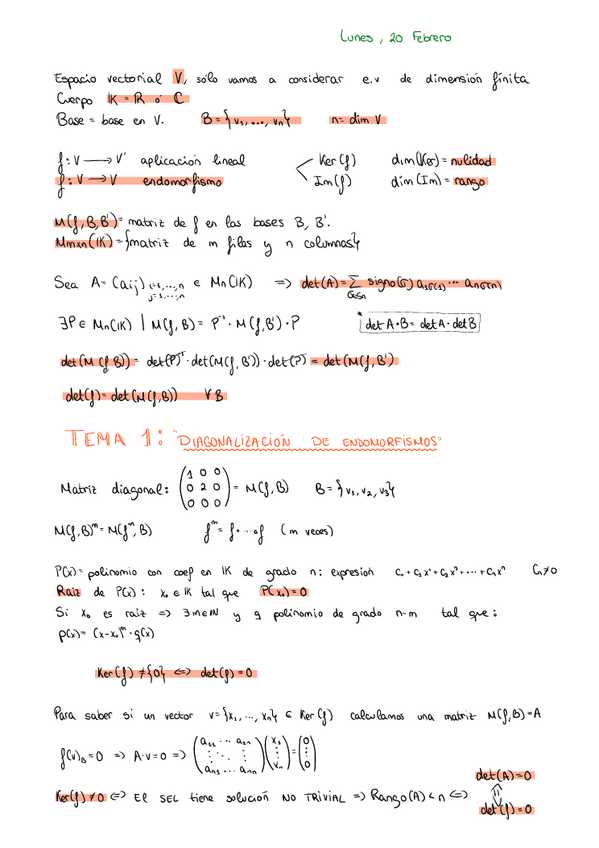 Lunes, 20 Febrero
Espacio vectorial V, sólo vamos a considerar e.v de dimensión finita
Cuerpo K = R ó C
Base = base en V. B = {v₁, ..., vₙ} n = dim V
f: V → V' aplicación lineal < Ker(f) dim(Ker) = nulidad
f: V → V endomorfismo Im(f) dim(Im) = rango
M(f, B, B') = matriz de f en las bases B, B'.
Mmxn(K) = {matriz de m filas y n columnas}
Sea A = (aij) i=1,...,n j=1,...,n ∈ Mn(K) => det(A) = Σ signo(σ) a1σ(1) ... anσ(n)
σ∈Sn
∃P ∈ Mn(K) | M(f, B) = P⁻¹ · M(f, B') · P det A·B = det A · det B
det(M(f, B)) = det(P)⁻¹ · det(M(f, B')) · det(P) = det(M(f, B'))
det(f) = det(M(f, B)) ∀ B
TEMA 1: "DIAGONALIZACIÓN DE ENDOMORFISMOS"
1 0 0
Matriz diagonal: (0 2 0) = M(f, B) B = {v₁, v₂, v₃}
0 0 0
M(f, B)ᵐ = M(fᵐ, B) fᵐ = f· ... ·f (m veces)
P(x) = polinomio con coef en K de grado n: expresión C₀ + C₁x¹ + C₂x² + ... + Cₙxⁿ Cₙ ≠ 0
Raiz de P(x): x₀ ∈ K tal que P(x₀) = 0
Si x₀ es raiz => ∃ m ∈ N y q polinomio de grado n-m tal que:
p(x) = (x-x₀)ᵐ · q(x)
Ker(f) ≠ {0} <=> det(f) = 0
Para saber si un vector v = {x₁, ..., xₙ} ∈ Ker(f) calculamos una matriz M(f, B) = A
a₁₁ ... a₁ₙ x₁ 0
f(v)B = 0 => A·v = 0 => (⋮ ⋱ ⋮)(⋮) = (⋮)
aₙ₁ ... aₙₙ xₙ 0
det(A) = 0
Ker(f) ≠ 0 <=> El SEL tiene solución NO TRIVIAL => Rango(A) < n <=> ⇕
det(f) = 0